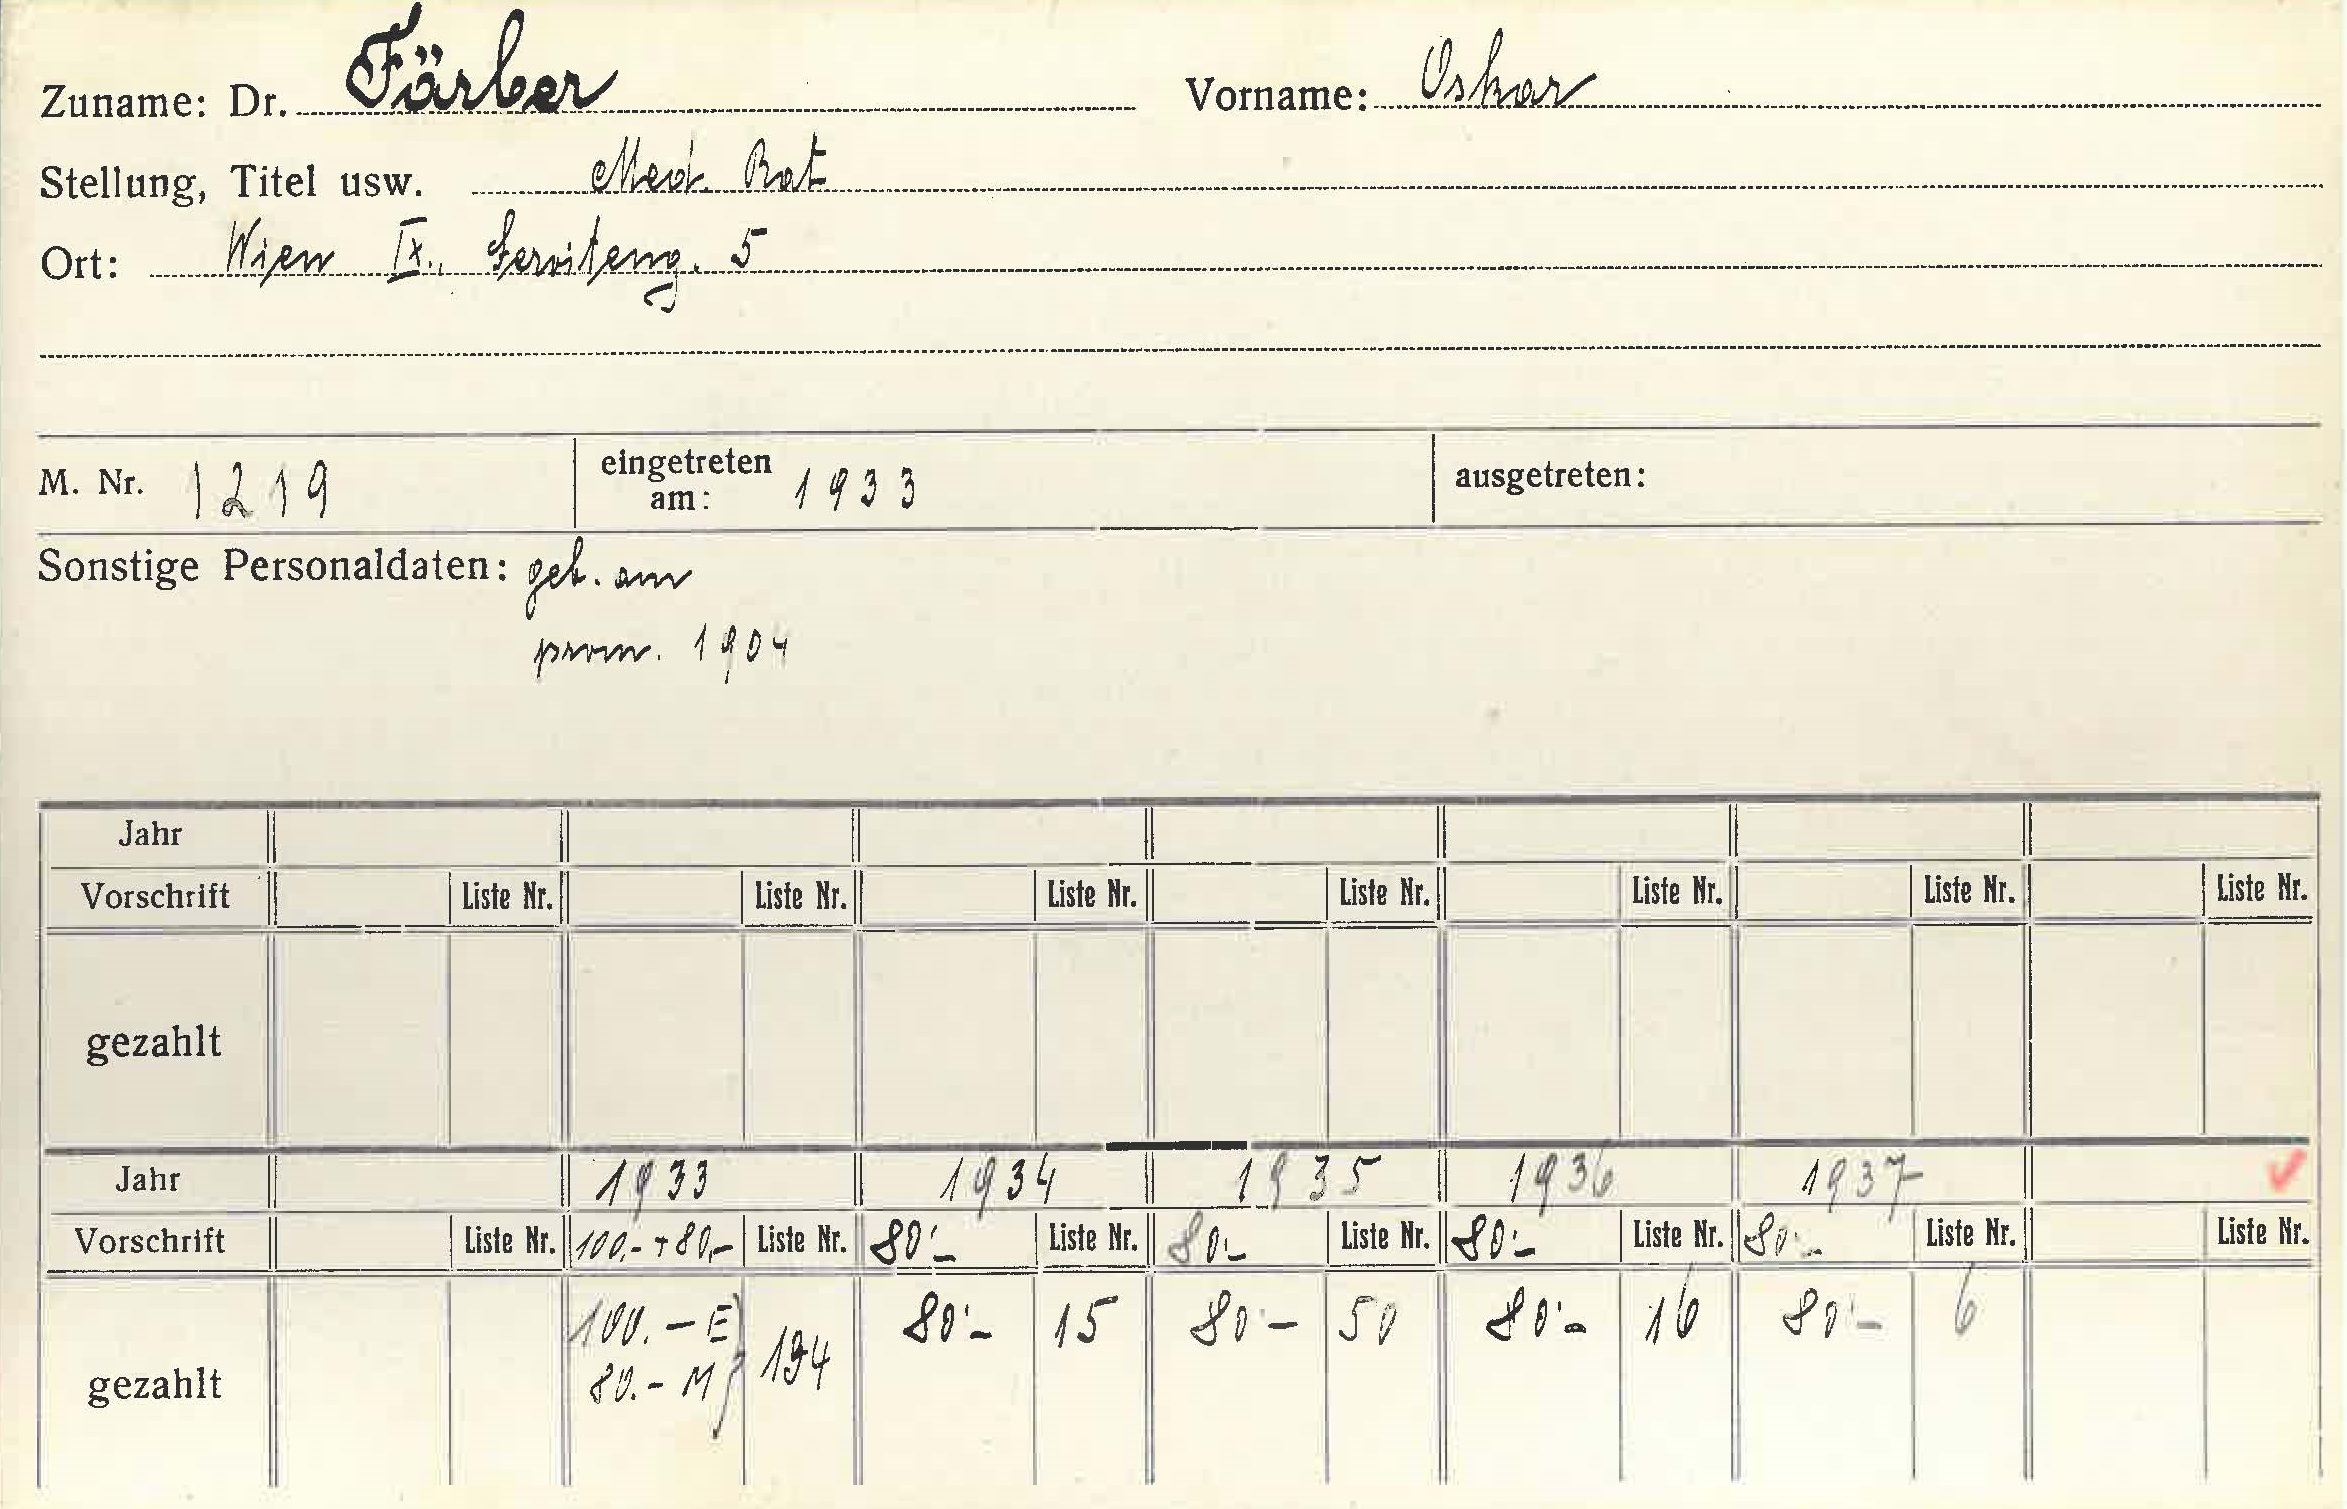 Zuname: Dr. Färber Vorname: Oskar
Stellung, Titel usw. Med. Rat
Ort: Wien IX., Serviteng. 5
M. Nr. 1219 eingetreten am: 1933 ausgetreten:
Sonstige Personaldaten: geb. am
prom. 1904
Jahr
Vorschrift Liste Nr. Liste Nr. Liste Nr. Liste Nr. Liste Nr. Liste Nr. Liste Nr.
gezahlt
Jahr 1933 1934 1935 1936 1937
Vorschrift Liste Nr. 100.- + 80,- Liste Nr. 80.- Liste Nr. 80.- Liste Nr. 80.- Liste Nr. 80.- Liste Nr. Liste Nr.
100.- E 80.- 15 80.- 50 80.- 16 80.- 6
80.- M 194
gezahlt